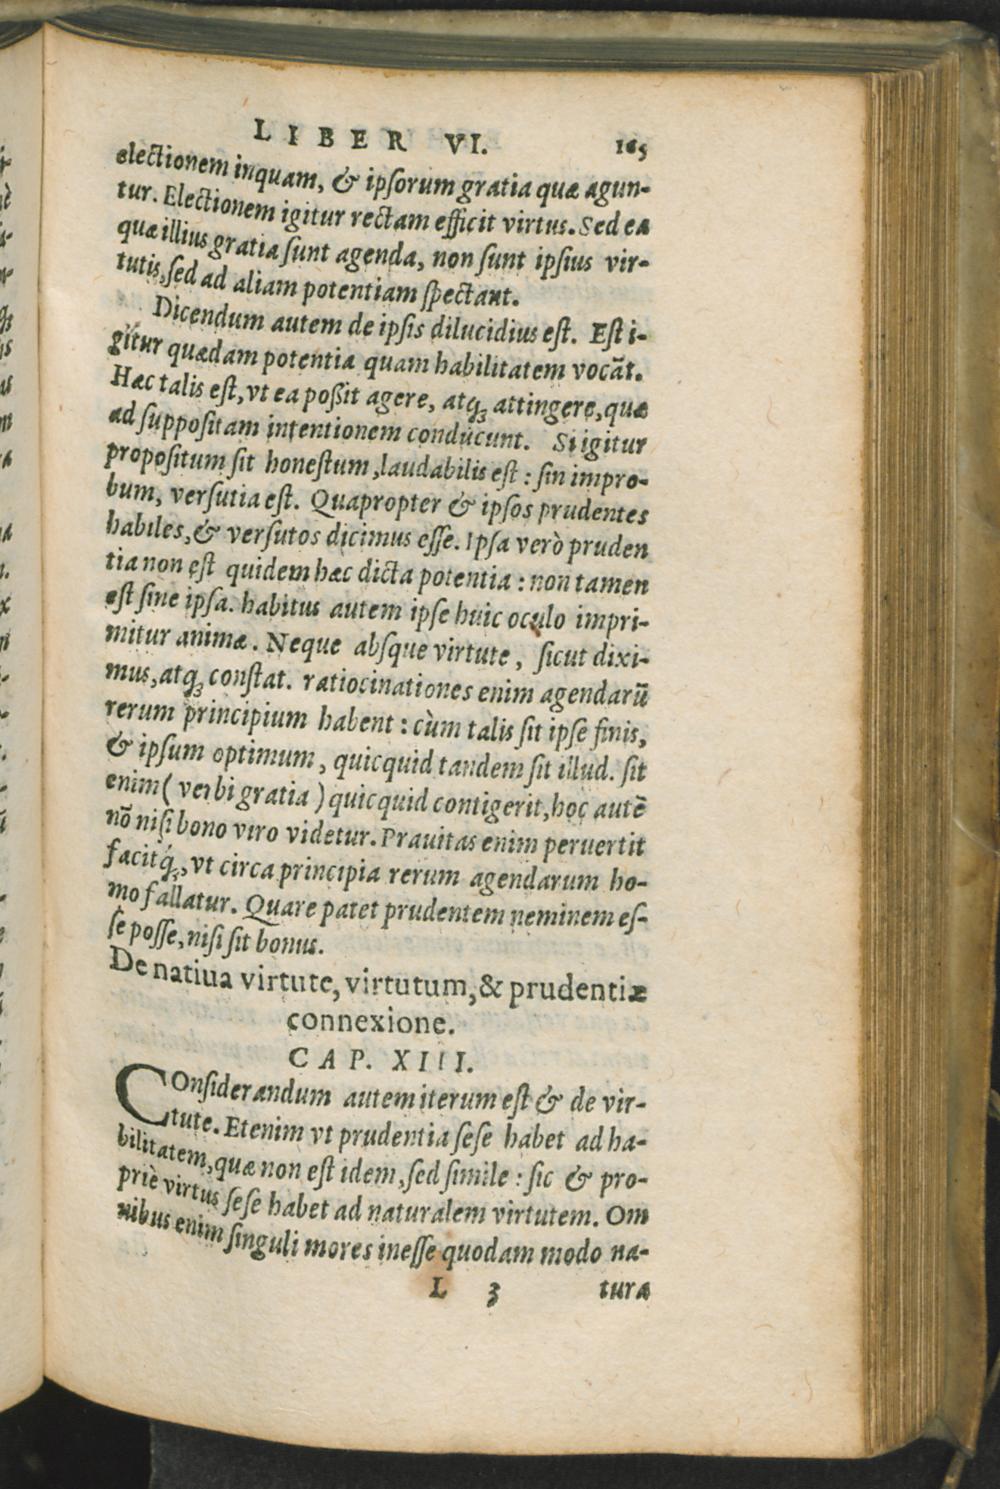 LIBER VI. 165
electionem inquam, & ipsorum gratia quæ agun-
tur. Electionem igitur rectam efficit virtus. Sed ea
quæ illius gratia sunt agenda, non sunt ipsius vir-
tutis, sed ad aliam potentiam spectant.
Dicendum autem de ipsis dilucidius est. Est i-
gitur quædam potentia quam habilitatem vocāt.
Hæc talis est, vt ea poßit agere, atqꝫ attingere, quæ
ad suppositam intentionem conducunt. Si igitur
propositum sit honestum, laudabilis est : sin impro-
bum, versutia est. Quapropter & ipsos prudentes
habiles, & versutos dicimus esse. Ipsa verò pruden
tia non est quidem hæc dicta potentia : non tamen
est sine ipsa. habitus autem ipse huic oculo impri-
mitur animæ. Neque absque virtute, sicut dixi-
mus, atqꝫ constat. ratiocinationes enim agendarū
rerum principium habent : cùm talis sit ipse finis,
& ipsum optimum, quicquid tandem sit illud. sit
enim ( verbi gratia ) quicquid contigerit, hoc autē
nō nisi bono viro videtur. Prauitas enim peruertit
facitq́ꝫ, vt circa principia rerum agendarum ho-
mo fallatur. Quare patet prudentem neminem es-
se posse, nisi sit bonus.
De natiua virtute, virtutum, & prudentiæ
connexione.
CAP. XIII.
COnsiderandum autem iterum est & de vir-
tute. Etenim vt prudentia sese habet ad ha-
bilitatem, quæ non est idem, sed simile : sic & pro-
priè virtus sese habet ad naturalem virtutem. Om
nibus enim singuli mores inesse quodam modo na-
L 3 turæ